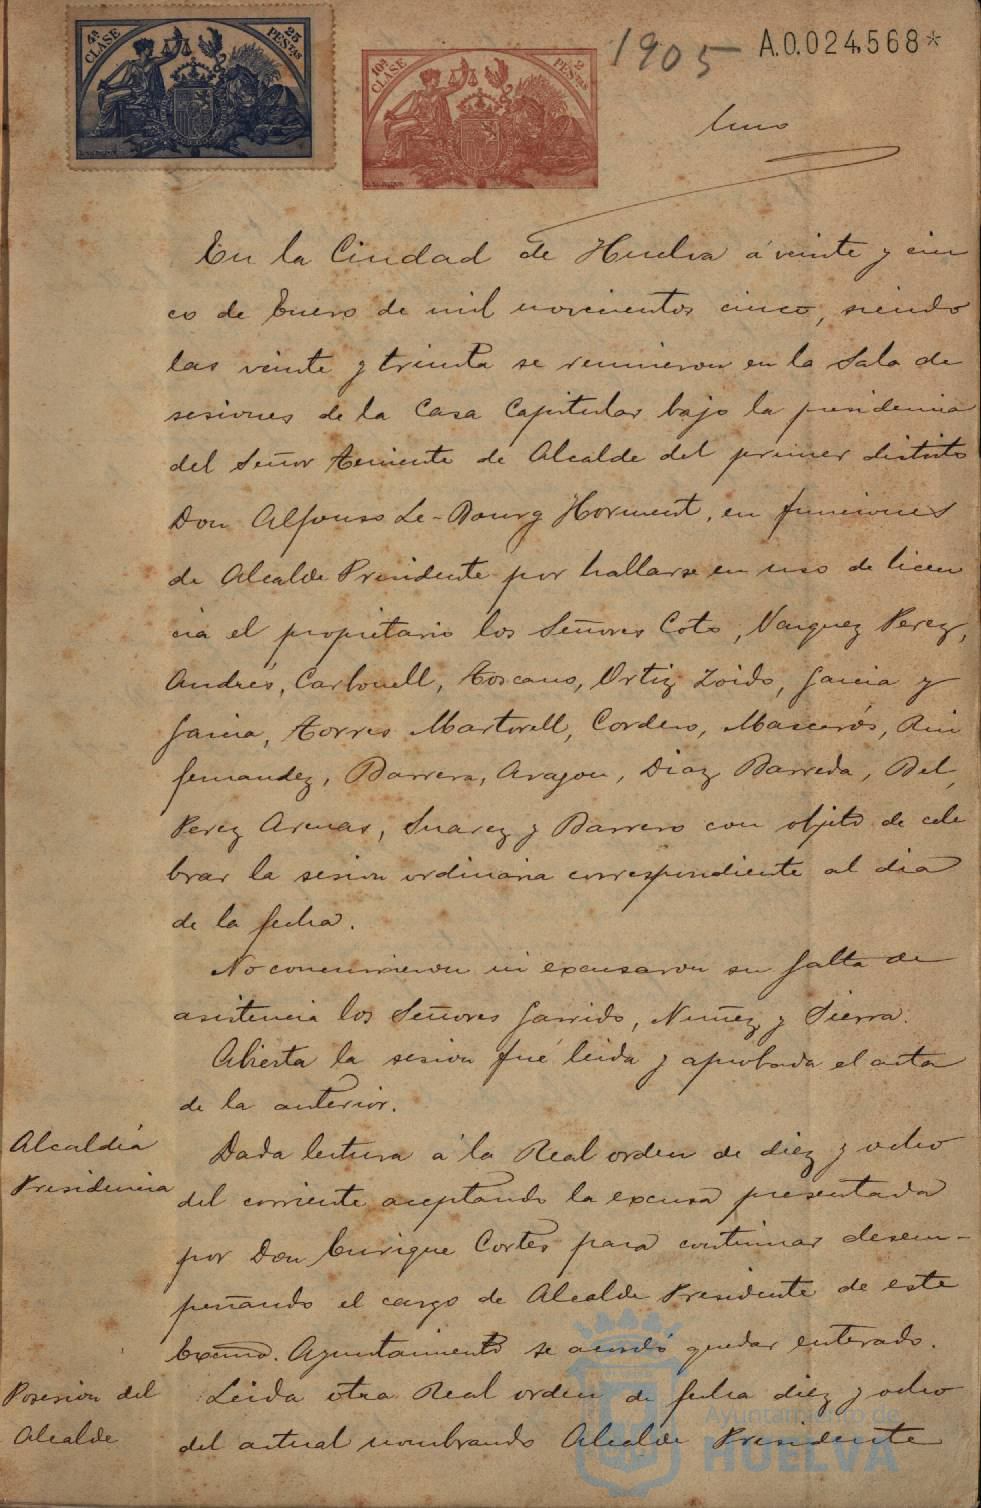 4ª CLASE 25 PESETAS
10ª CLASE 2 PESETAS
1905
A.0.024,568*
En la Ciudad de Huelva á veinte y cin
co de Enero de mil novecientos cinco, siendo
las veinte y treinta se reunieron en la Sala de
sesiones de la Casa Capitular bajo la presidencia
del Señor Teniente de Alcalde del primer distrito
Don Alfonso Le-Bourg Horment, en funciones
de Alcalde Presidente por hallarse en uso de licen
cia el propietario los Señores Coto, Vazquez Perez,
Andrés, Carbonell, Toscano, Ortiz Zoido, Garcia y
Garcia, Torres Martorell, Cordero, Mascarós,
fernandez, Barrera, Aragon, Diaz Barreda, Bel,
Perez Arenas, Suarez y Barrero con objeto de cele
brar la sesion ordinaria correspondiente al dia
de la fecha.
No concurrieron ni excusaron su falta de
asistencia los Señores Garrido, Nuñez y Sierra.
Abierta la sesion fué leida y aprobada el acta
de la anterior.
Alcaldía
Presidencia
Dada lectura á la Real orden de diez y ocho
del corriente aceptando la excusa presentada
por Don Enrique Cortés para continuar desem-
peñando el cargo de Alcalde Presidente de este
Excmo. Ayuntamiento se acordó quedar enterado.
Posesion del
Alcalde
Leida otra Real orden de fecha diez y ocho
del actual nombrando Alcalde Presidente
Ayuntamiento de
HUELVA